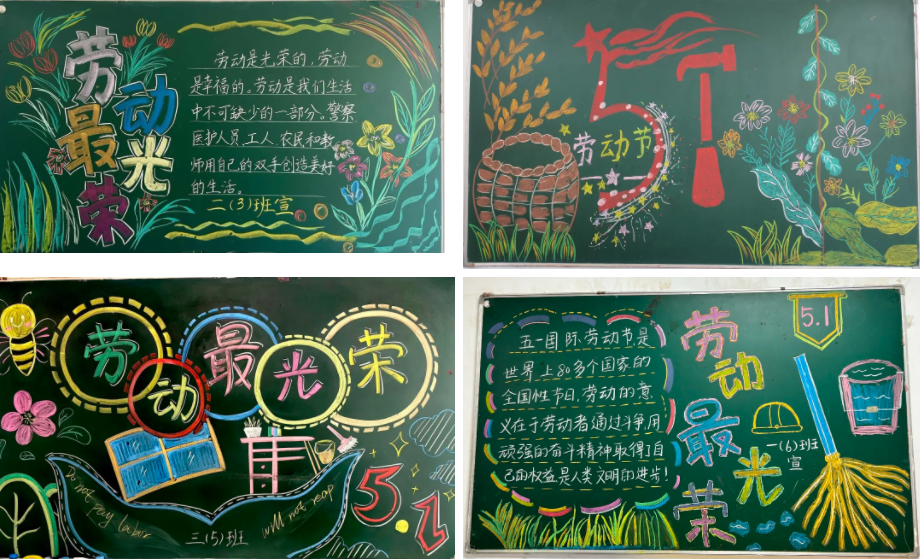 劳动最光荣
劳动是光荣的，劳动
是幸福的。劳动是我们生活
中不可缺少的一部分。警察
医护人员、工人、农民和教
师用自己的双手创造美好
的生活。
二(3)班宣
51
劳动节
劳动最光荣
do not pay labour
will not reap
51
三(5)班
五一国际劳动节是
世界上80多个国家的
全国性节日，劳动的意
义在于劳动者通过斗争，用
顽强的奋斗精神取得了自
己的权益是人类文明的进步！
劳动最光荣
5.1
一(6)班
宣